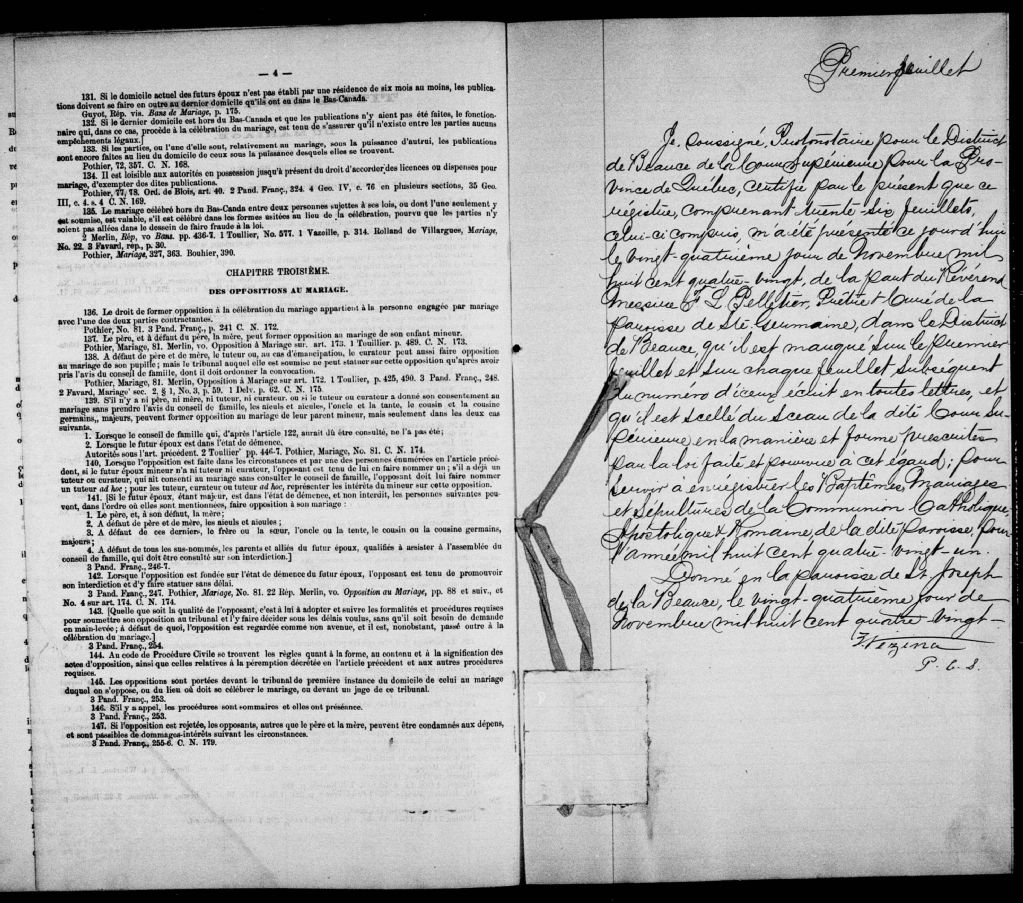 — 4 —
131. Si le domicile actuel des futurs époux n'est pas établi par une résidence de six mois au moins, les publica-
tions doivent se faire en outre au dernier domicile qu'ils ont eu dans le Bas-Canada.
Guyot, Rép. vis. Bans de Mariage, p. 175.
132. Si le dernier domicile est hors du Bas-Canada et que les publications n'y aient pas été faites, le fonction-
naire qui, dans ce cas, procède à la célébration du mariage, est tenu de s'assurer qu'il n'existe entre les parties aucuns
empêchements légaux.]
133. Si les parties, ou l'une d'elle sont, relativement au mariage, sous la puissance d'autrui, les publications
sont encore faites au lieu du domicile de ceux sous la puissance desquels elles se trouvent.
Pothier, 72, 357. C. N. 168.
134. Il est loisible aux autorités en possession jusqu'à présent du droit d'accorder des licences ou dispenses pour
mariage, d'exempter des dites publications.
Pothier, 77, 78. Ord. de Blois, art. 40. 2 Pand. Franç., 324. 4 Geo. IV, c. 76 en plusieurs sections, 35 Geo.
III, c. 4. s. 4 C. N. 169.
135. Le mariage célébré hors du Bas-Canda entre deux personnes sujettes à ses lois, ou dont l'une seulement y
est soumise, est valable, s'il est célébré dans les formes usitées au lieu de la célébration, pourvu que les parties n'y
soient pas allées dans le dessein de faire fraude à la loi.
2 Merlin, Rép, vo Bans. pp. 436-7. 1 Toullier, No. 577. 1 Vazeille, p. 314. Rolland de Villargues, Mariage,
No. 22. 3 Favard, rép., p. 30.
Pothier, Mariage, 327, 363. Bouhier, 390.
CHAPITRE TROISIÈME.
DES OPPOSITIONS AU MARIAGE.
136. Le droit de former opposition à la célébration du mariage appartient à la personne engagée par mariage
avec l'une des deux parties contractantes.
Pothier, No. 81. 3 Pand. Franç., p. 241 C. N. 172.
137. Le père, et à défaut du père, la mère, peut former opposition au mariage de son enfant mineur.
Pothier, Mariage, 81. Merlin, vo. Opposition à Mariage sur. art. 173. 1 Touillier. p. 489. C. N. 173.
138. A défaut de père et de mère, le tuteur ou, au cas d'émancipation, le curateur peut aussi faire opposition
au mariage de son pupille; mais le tribunal auquel elle est soumise ne peut statuer sur cette opposition qu'après avoir
pris l'avis du conseil de famille, dont il doit ordonner la convocation.
Pothier, Mariage, 81. Merlin, Opposition à Mariage sur art. 172. 1 Toullier, p. 425, 490. 3 Pand. Franç., 248.
2 Favard, Mariage' sec. 2, § 1, No. 3, p. 59. 1 Delv. p. 62. C. N. 175.
139. S'il n'y a ni père, ni mère, ni tuteur, ni curateur, ou si le tuteur ou curateur a donné son consentement au
mariage sans prendre l'avis du conseil de famille, les aïeuls et aïeules, l'oncle et la tante, le cousin et la cousine
germains,, majeurs, peuvent former opposition au mariage de leur parent mineur, mais seulement dans les deux cas
suivants.
1. Lorsque le conseil de famille qui, d'après l'article 122, aurait dû être consulté, ne l'a pas été;
2. Lorsque le futur époux est dans l'état de démence.
Autorités sous l'art. précédent. 2 Toullier' pp. 446-7. Pothier, Mariage, No. 81. C. N. 174.
140. Lorsque l'opposition est faite dans les circonstances et par une des personnes énumérées en l'article précé-
dent, si le futur époux mineur n'a ni tuteur ni curateur, l'opposant est tenu de lui en faire nommer un; s'il a déjà un
tuteur ou curateur, qui ait consenti au mariage sans consulter le conseil de famille, l'opposant doit lui faire nommer
un tuteur ad hoc; pour les tuteur, curateur ou tuteur ad hoc, représenter les intérêts du mineur sur cette opposition.
141. [Si le futur époux, étant majeur, est dans l'état de démence, et non interdit, les personnes suivantes peu-
vent, dans l'ordre où elles sont mentionnées, faire opposition à son mariage:
1. Le père, et, à son défaut, la mère;
2. A défaut de père et de mère, les aïeuls et aïeules;
3. A défaut de ces derniers, le frère ou la sœur, l'oncle ou la tente, le cousin ou la cousine germains,
majeurs;
4. A défaut de tous les sus-nommés, les parents et alliés du futur époux, qualifiés à assister à l'assemblée du
conseil de famille, qui doit être consulté sur son interdiction.]
3 Pand. Franç., 246-7.
142. Lorsque l'opposition est fondée sur l'état de démence du futur époux, l'opposant est tenu de promouvoir
son interdiction et d'y faire statuer sans délai.
3 Pand. Franç., 247. Pothier, Mariage, No. 81. 22 Rép. Merlin, vo. Opposition au Mariage, pp. 88 et suiv., et
No. 4 sur art. 174. C. N. 174.
143. [Quelle que soit la qualité de l'opposant, c'est à lui à adopter et suivre les formalités et procédures requises
pour soumettre son opposition au tribunal et l'y faire décider sous les délais voulus, sans qu'il soit besoin de demande
en main-levée; à défaut de quoi, l'opposition est regardée comme non avenue, et il est, nonobstant, passé outre à la
célébration du mariage.]
3 Pand. Franç., 254.
144. Au code de Procédure Civile se trouvent les règles quant à la forme, au contenu et à la signification des
actes d'opposition, ainsi que celles relatives à la péremption décrétée en l'article précédent et aux autres procédures
requises.
145. Les oppositions sont portées devant le tribunal de première instance du domicile de celui au mariage
duquel on s'oppose, ou du lieu où doit se célébrer le mariage, ou devant un juge de ce tribunal.
3 Pand. Franç., 253.
146. S'il y a appel, les procédures sont sommaires et elles ont préséance.
3 Pand. Franç., 253.
147. Si l'opposition est rejetée, les opposants, autres que le père et la mère, peuvent être condamnés aux dépens,
et sont passibles de dommages-intérêts suivant les circonstances.
3 Pand. Franç., 255-6. C. N. 179.
Premier feuillet
Je, soussigné, Protonotaire pour le District
de Beauce de la Cour Supérieure pour la Pro-
vince de Québec, certifie par le présent que ce
régistre, comprenant trente-six feuillets,
celui-ci compris, m'a été présenté ce jourd'hui
le vingt-quatrième jour de Novembre mil
huit cent quatre-vingt, de la part du Révérend
Messire F L Pelletier, Prêtre et Curé de la
paroisse de Ste Germaine, dans le District
de Beauce, qu'il est marqué sur le premier
feuillet et sur chaque feuillet subséquent
du numéro d'iceux écrit en toutes lettres, et
qu'il est scellé du sceau de la dite Cour Su-
périeure, en la manière et forme prescrites
par la loi faite et pourvue à cet égard; pour
servir à enregistrer les Baptêmes, Mariages
et Sépultures de la Communion Catholique
Apostolique & Romaine, de la dite paroisse, pour
l'année mil huit cent quatre-vingt-un.
Donné en la paroisse de St Joseph
de la Beauce, le vingt-quatrième jour de
Novembre mil huit cent quatre vingt—
Vézina
P. C. S.